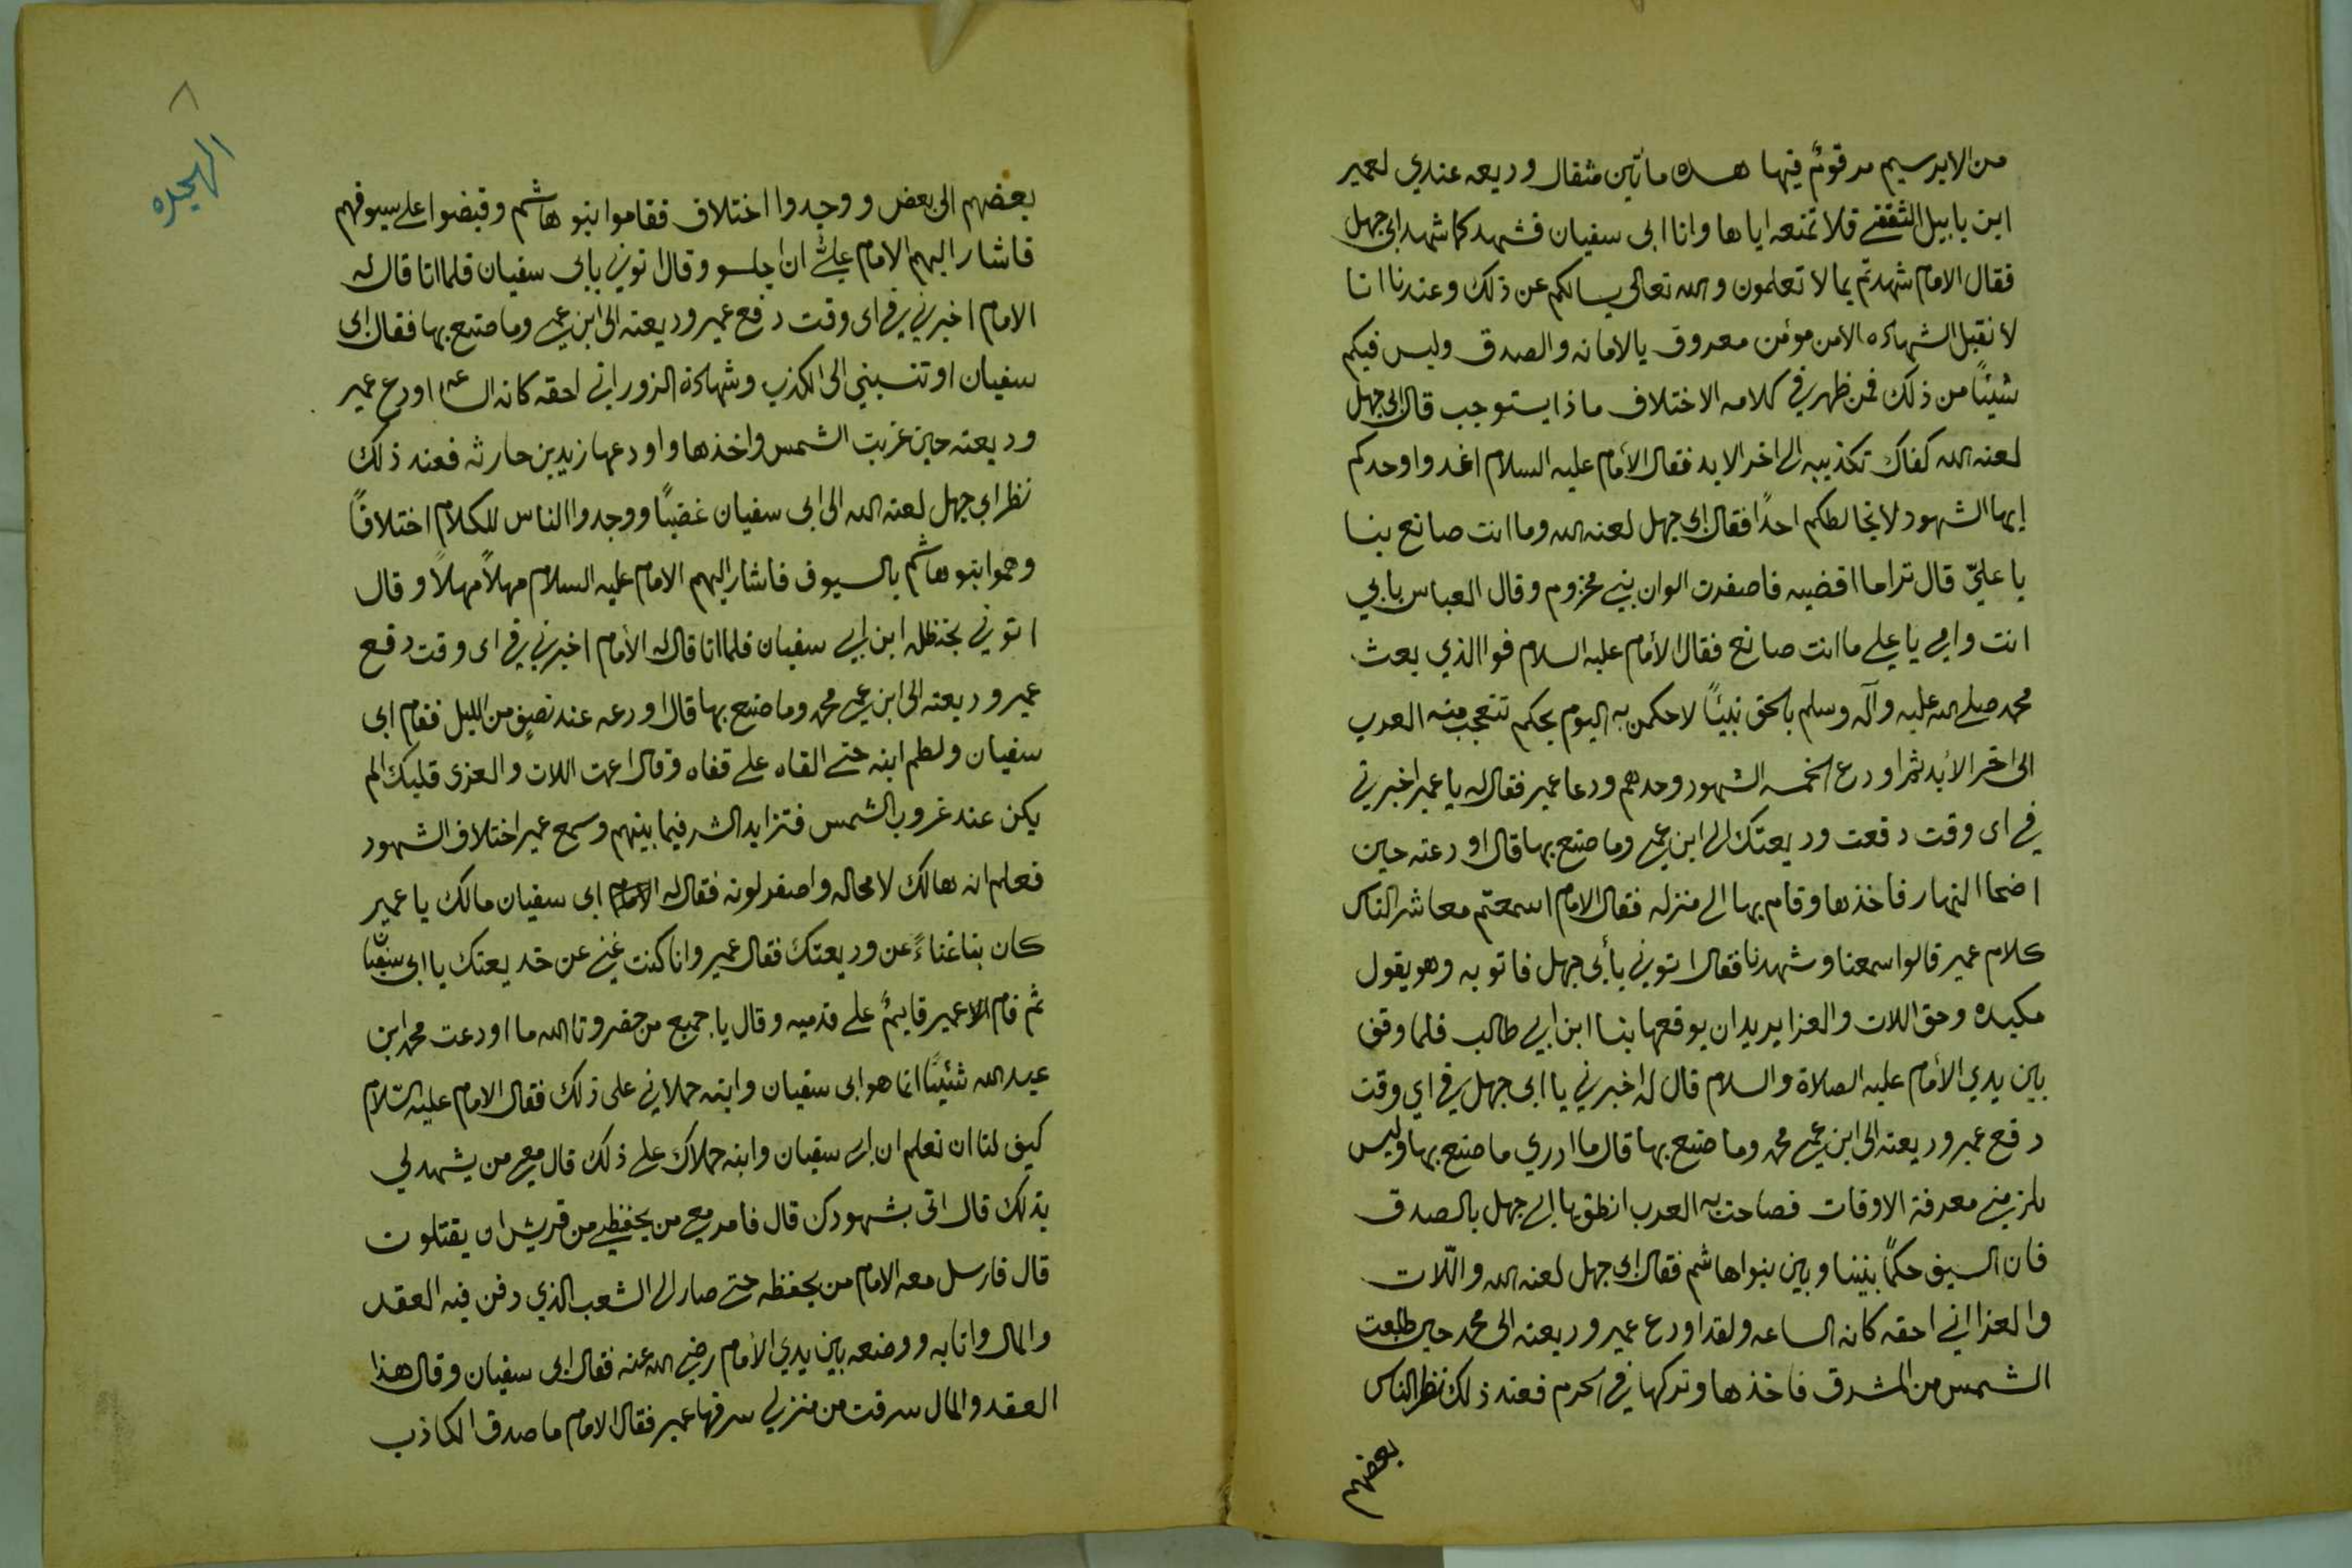 من الابرسيم مرقومٌ فيها هذه مأتين مثقال وديعه عندي لعمير
ابن يابيل الثقفي فلا تمنعه اياها وانا ابى سفيان فشهد كما شهد ابى جهل
فقال الامام شهدتم بما لا تعلمون والله تعالى يسالكم عن ذلك وعندنا انا
لا نقبل الشهاده الا من مومن معروف بالامانه والصدق وليس فيكم
شيئًا من ذلك فمن ظهر في كلامه الاختلاف ماذا يستوجب قال ابى جهل
لعنه الله كفاك تكذيبه الى اخر الابد فقال الأمام عليه السلام اغدوا وحدكم
إيها الشهود لا يخالطكم احدًا فقال ابى جهل لعنه الله وما انت صانع بنا
يا عليّ قال تراما اقضيه فاصفرت الوان بني مخزوم وقال العباس بابي
انت وامي يا علي ما انت صانع فقال الأمام عليه السلام فوا الذي بعث
محمد صلى الله عليه وآله وسلم بالحق نبيئاً لاحكمن به اليوم بحكم تتعجب منه العرب
الى اخر الأبد ثم اودع الخمسه الشهود وحدهم ودعا عمير فقال له يا عمير اخبرني
في اى وقت دفعت وديعتك الى ابن عمي وما صنع بها قال اودعته حين
اضحا النهار فاخذها وقام بها الى منزله فقال الامام اسمعتم معاشر الناس
كلام عمير قالوا سمعنا وشهدنا فقال اتوني بأبى جهل فاتو به وهو يقول
مكيده وحق اللات والعزا يريد ان يوقعها بنا ابن ابي طالب فلما وقف
بين يدي الأمام عليه الصلاة والسلام قال له اخبرني يا ابى جهل في اي وقت
دفع عمير وديعته الى ابن عمي محمد وما صنع بها قال ما ادري ما صنع بها وليس
يلزمني معرفة الاوقات فصاحت به العرب انطق يا ابى جهل بالصدق
فان السيف حكمًا بيننا وبين بنوا هاشم فقال ابى جهل لعنه الله واللّات
والعزا اني احقه كانه الساعه ولقد اودع عمير وديعته الى محمد حين طلعت
الشمس من المشرق فاخذها وتركها في الحرم فعند ذلك نظر الناس
بعضهم
٨
الهجره
بعضهم الى بعض ووجدوا اختلاف فقاموا بنو هاشم وقبضوا على سيوفهم
فاشار اليهم الامام علي ان اجلسو وقال اتوني بابى سفيان فلما اتا قال له
الامام اخبرني في اى وقت دفع عمير وديعته الى ابن عمي وما صنع بها فقال ابى
سفيان او تنسبني الى الكذب وشهادة الزور اني احقه كانه الساعه اودع عمير
وديعته حين غربت الشمس واخذها واودعها زيد بن حارثه فعند ذلك
نظر ابى جهل لعنه الله الى ابى سفيان غضبًا ووجدوا الناس للكلام اختلافًا
وهموا بنو هاشم بالسيوف فاشار اليهم الامام عليه السلام مهلاً مهلاً وقال
اتوني بحنظله ابن ابى سفيان فلما اتا قال له الأمام اخبرني في اى وقت دفع
عمير وديعته الى ابن عمي محمد وما صنع بها قال اودعه عند نصيف من الليل فقام ابى
سفيان ولطم ابنه حتى القاه على قفاه وقال اعمت اللات والعزى قلبك الم
يكن عند غروب الشمس فتزايد الشر فيما بينهم وسمع عمير اختلاف الشهود
فعلم انه هالك لا محاله واصفر لونه فقال له الامام ابى سفيان مالك يا عمير
كان بنا غناءً عن وديعتك فقال عمير وانا كنت غني عن خديعتك يا ابى سفيان
ثم قام الا عمير قايمٌ على قدميه وقال يا جميع من حضر وتا الله ما اودعت محمد ابن
عبد الله شيئًا انما هو ابى سفيان وابنه حملاني على ذلك فقال الامام عليه السّلام
كيف لنا ان نعلم ان ابى سفيان وابنه حملاك على ذلك قال معي من يشهد لي
بذلك قال اتى بشهودك قال فامر معي من يحفظني من قريش ان يقتلون
قال فارسل معه الامام من يحفظه حتى صار الى الشعب الذي دفن فيه العقد
والمال واتا به ووضعه بين يدي الأمام رضي الله عنه فقال ابى سفيان وقال هذا
العقد والمال سرقت من منزلي سرقها عمير فقال الامام ما صدق الكاذب